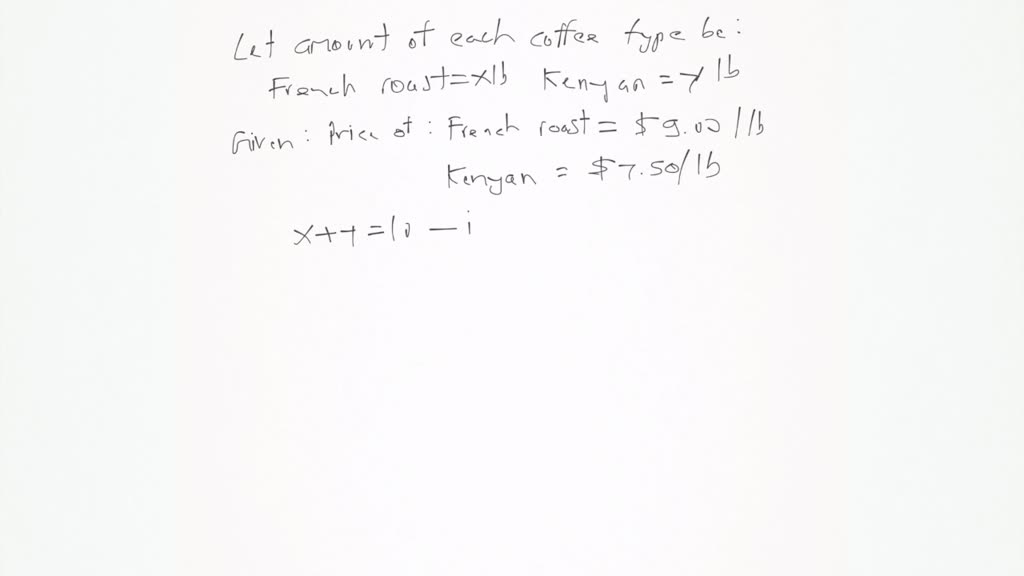 Let amount of each coffee type be:
French roast = x lb Kenyan = y lb
Given: Price of: French roast = $9.00 / lb
Kenyan = $7.50/lb
x+y=10 — i